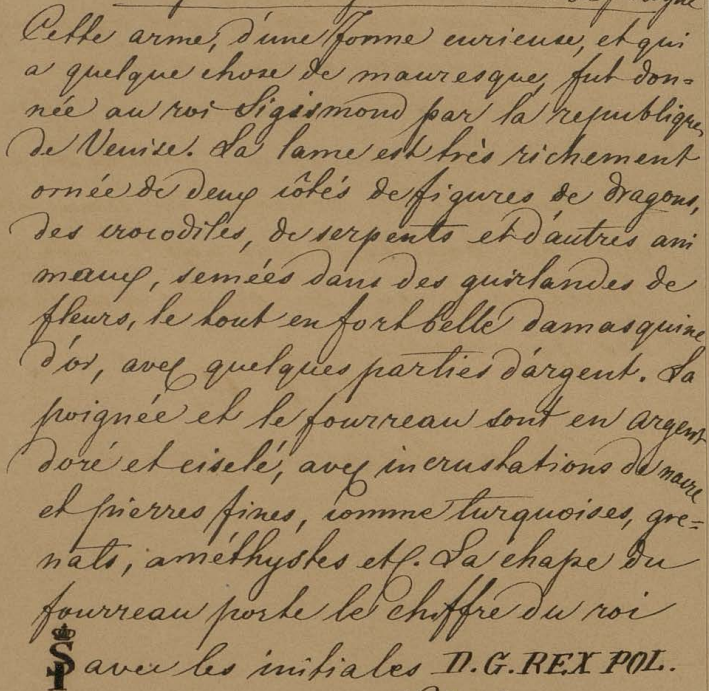 Cette arme, d'une forme curieuse, et qui
a quelque chose de mauresque, fut don=
née au roi Sigismond par la republique
de Venise. La lame est très richement
ornée de deux côtés de figures de dragons,
des crocodiles, de serpents et d'autres ani
maux, semées dans des guirlandes de
fleurs, le tout en fort belle damasquine
d'or, avec quelques parties d'argent. La
poignée et le fourreau sont en argent
doré et ciselé, avec incrustations de nacre
et pierres fines, comme turquoises, gre=
nats, améthystes etc. La chape du
fourreau porte le chiffre du roi
S avec les initiales D.G.REX POL.